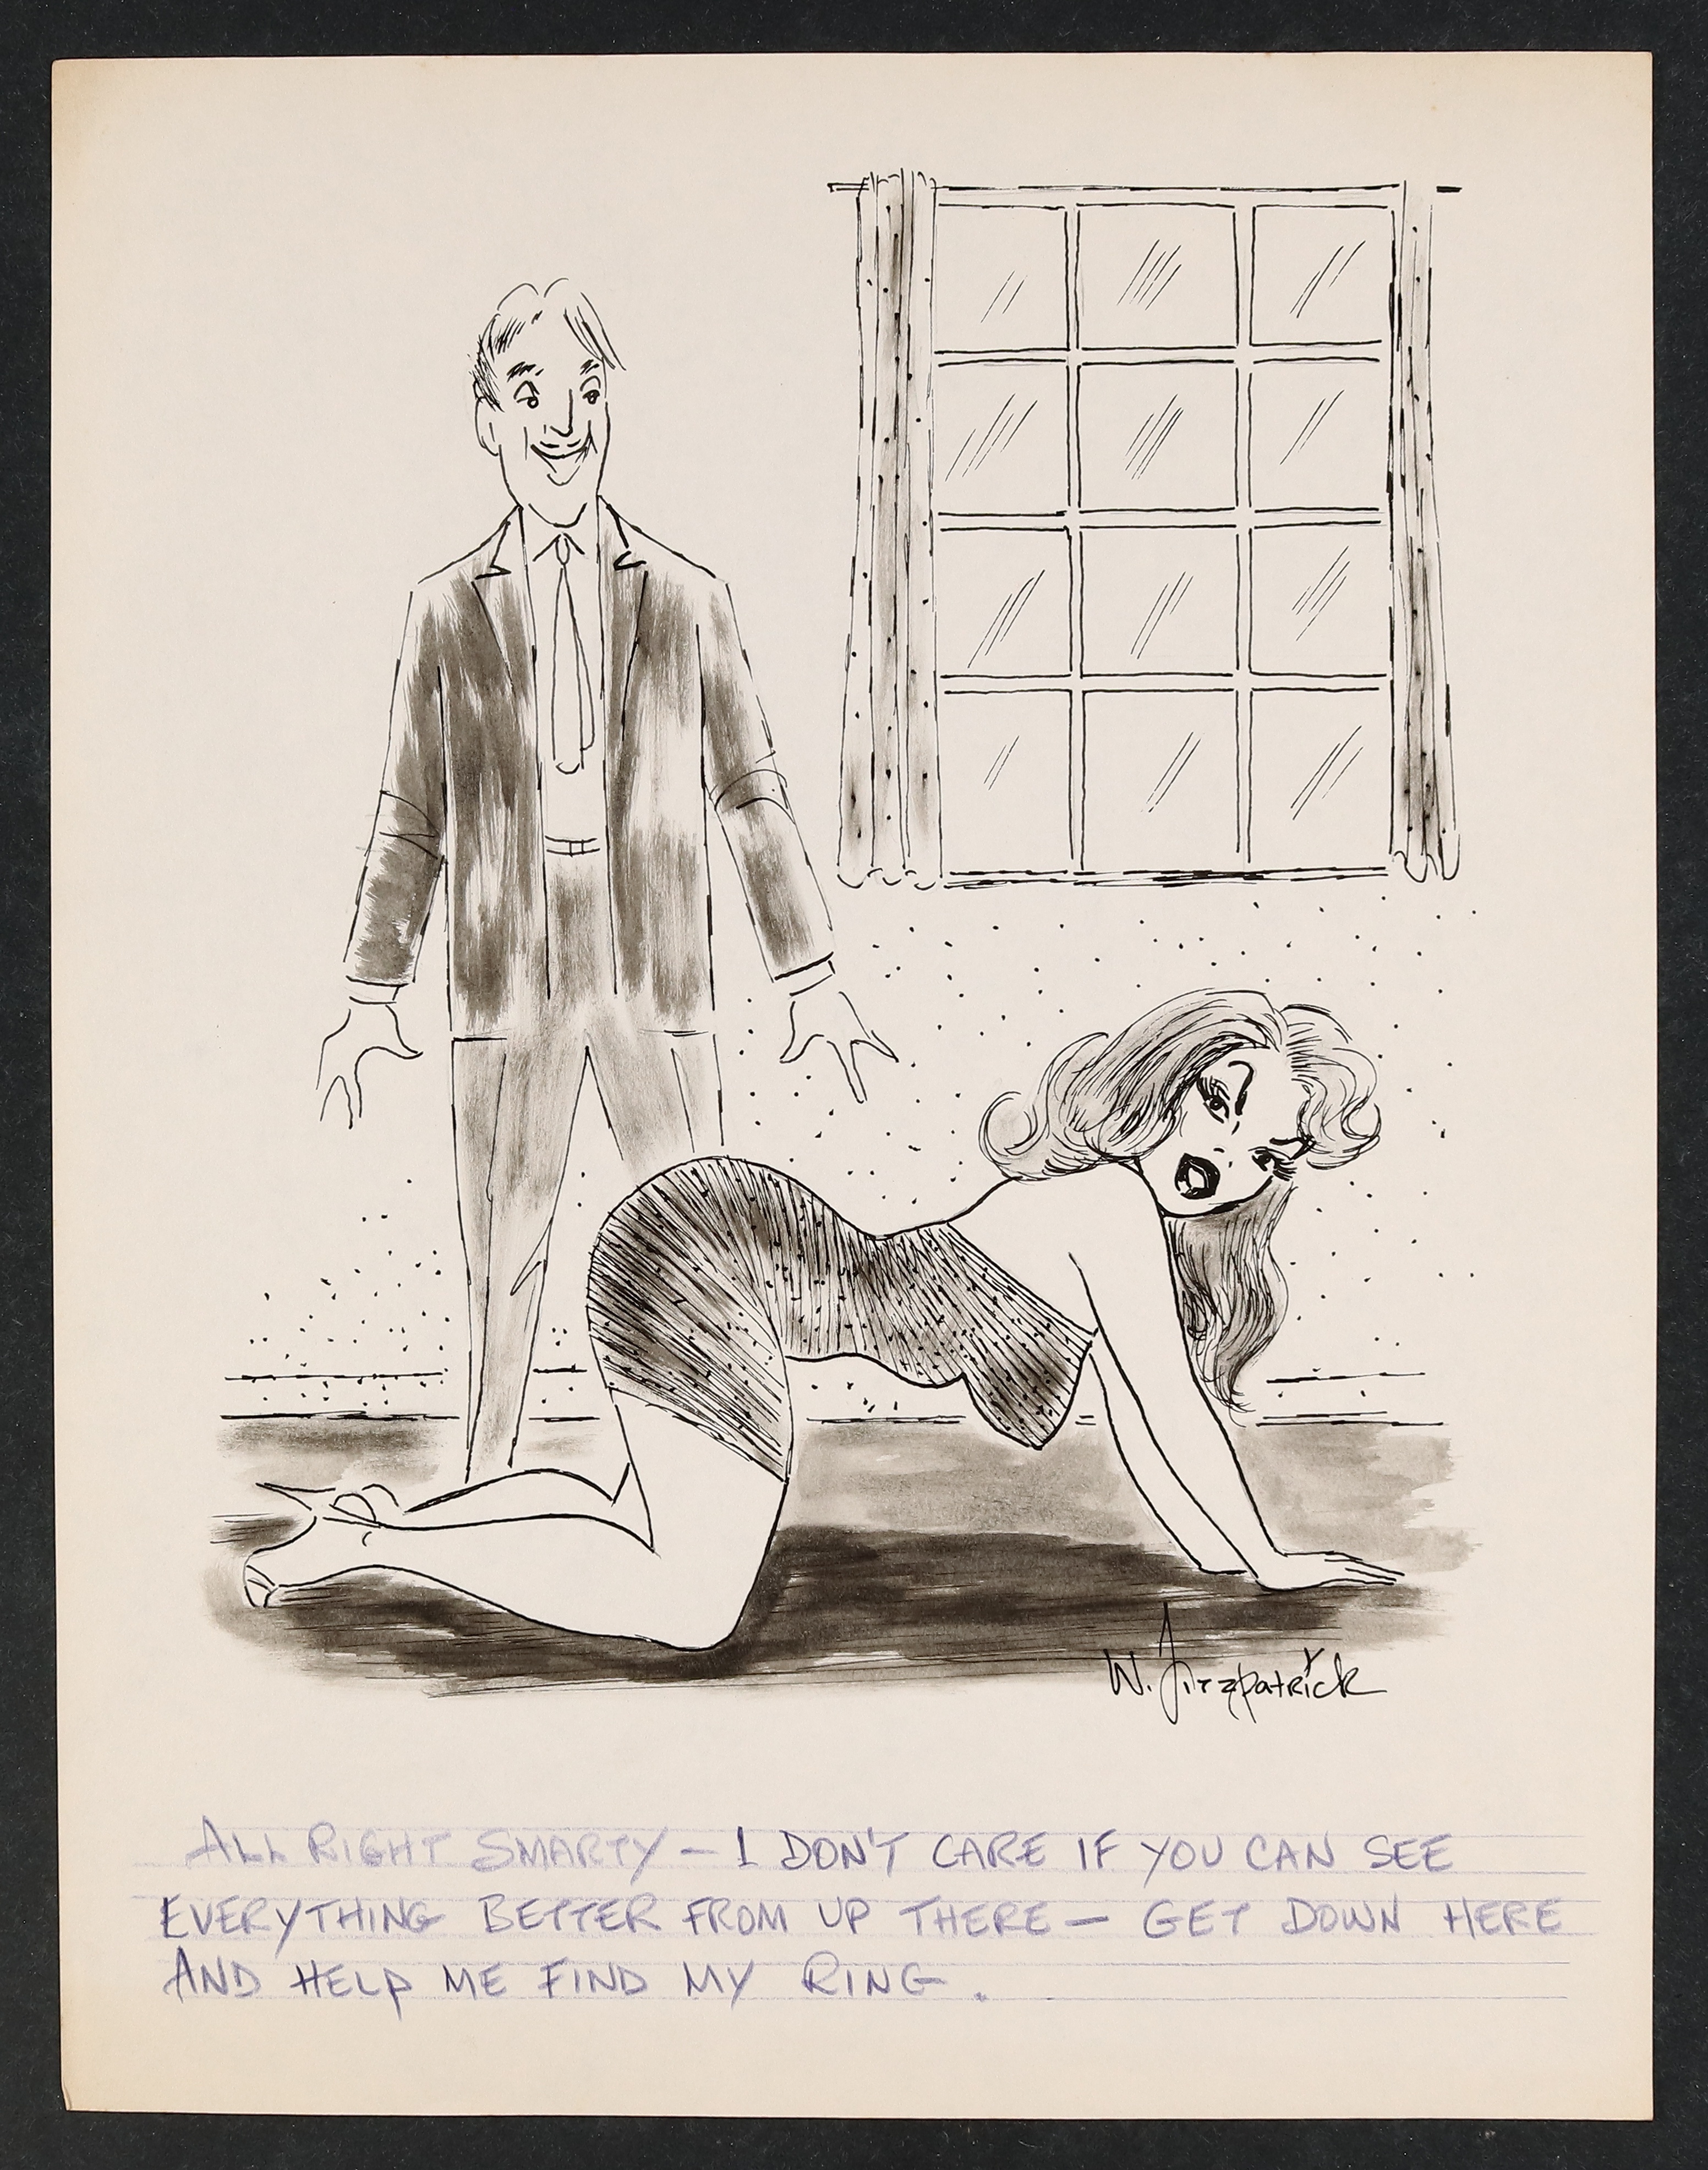 W. Fitzpatrick
ALL RIGHT SMARTY – I DON'T CARE IF YOU CAN SEE
EVERYTHING BETTER FROM UP THERE – GET DOWN HERE
AND HELP ME FIND MY RING.